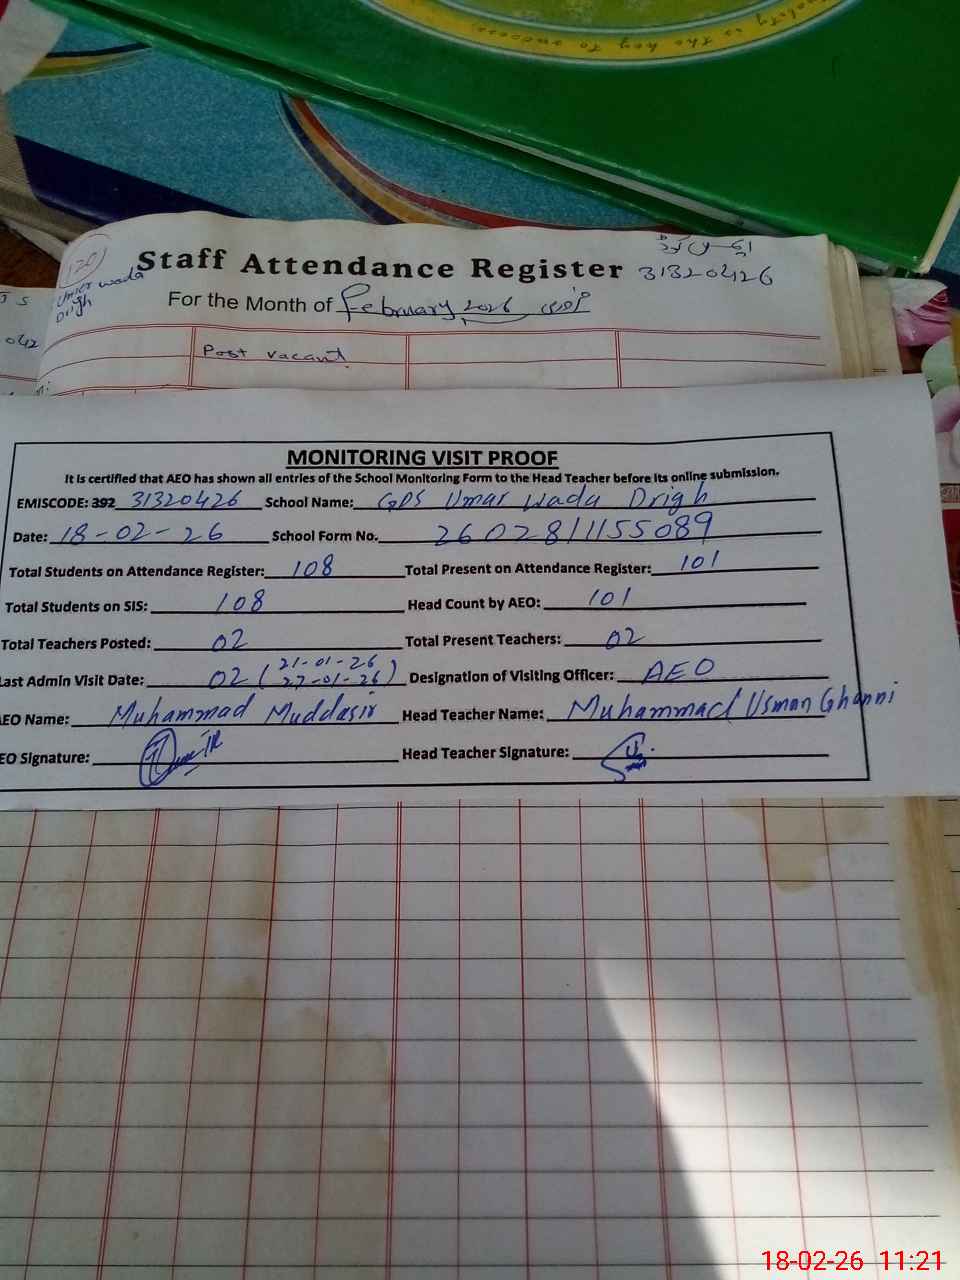 is the key to success
Staff Attendance Register 31320426
For the Month of February 2026
120
Umer wada
Drigh
Post vacant
MONITORING VISIT PROOF
It is certified that AEO has shown all entries of the School Monitoring Form to the Head Teacher before its online submission.
EMISCODE: 392 31320426 School Name: GPS Umar Wada Drigh
Date: 18-02-26 School Form No. 2602811155089
Total Students on Attendance Register: 108 Total Present on Attendance Register: 101
Total Students on SIS: 108 Head Count by AEO: 101
Total Teachers Posted: 02 Total Present Teachers: 02
Last Admin Visit Date: 02 (21-01-26 27-01-26) Designation of Visiting Officer: AEO
AEO Name: Muhammad Muddasir Head Teacher Name: Muhammad Usman Ghanni
EO Signature: Head Teacher Signature:
18-02-26 11:21